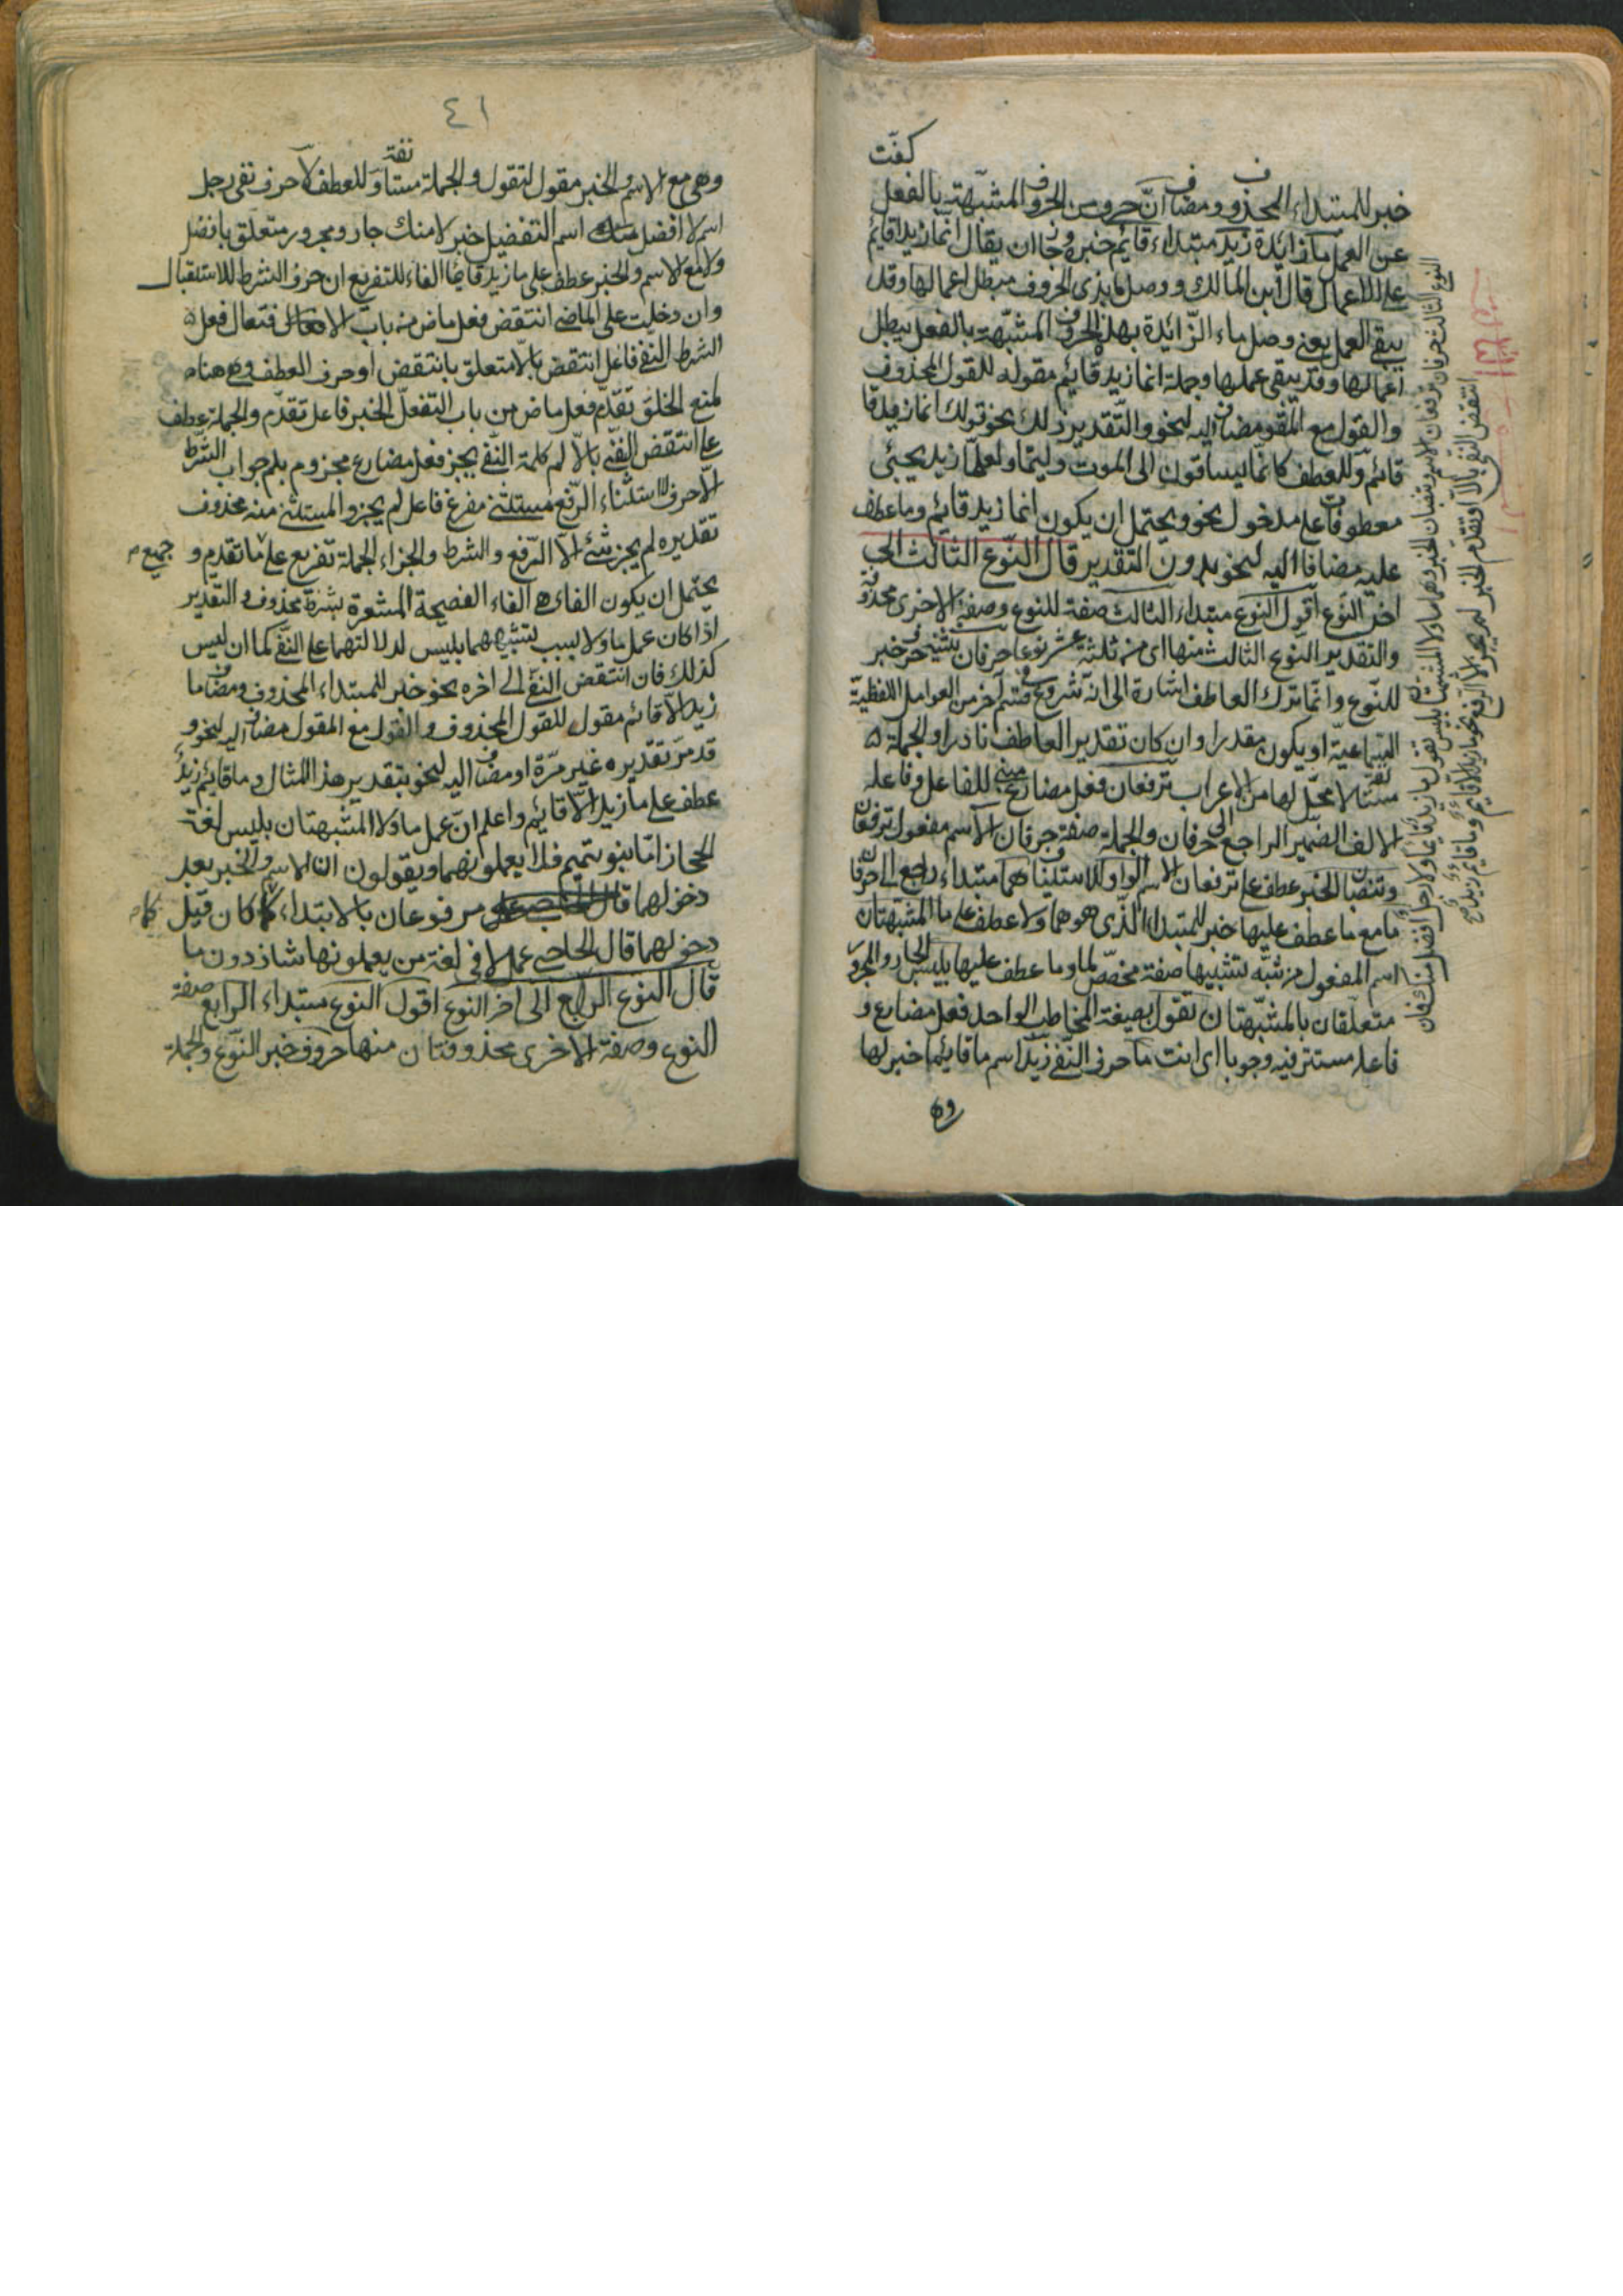 كفّت
خبر للمبتداء المحذوف ومضاف انّ حرف من الحروف المشبّهة بالفعل
عن العمل ما زائدة زيد مبتداء قائم خبره وجازان يقال انّما زيدا قائم
على الاعمال قال ابن المالك ووصل ما بذى الحروف مبطل اعمالها وقد
يبقى العمل يعنى وصل ماء الزّائدة بهذا الحروف المشبّهة بالفعل يبطل
اعمالها وقد يبقى عملها وجملة انما زيد قائم مقوله للقول المحذوف
والقول مع المقول مضاف اليه لنحو والتّقدير ذلك نحو قولك انما زيد قا
قائم وللعطف كانّما يساقون الى الموت وليتما ولعلّما زيد يجيئ
معطوفات على مدخول نحو ويحتمل ان يكون انما زيد قائم وما عطف
عليه مضافا اليه لنحو بدون التّقدير قال النّوع الثالث الى
اخر النّوع اقول النوع مبتداء الثالث صفة للنوع وصفة الاخرى محذوفة
والتقدير النوع الثالث منها اى من ثلثة عشر نوعا حرفان تثنية حرف خبر
للنّوع وانّما ترك العاطف اشارة الى انّه شروع فى قسم آخر من العوامل اللفظيّة
السّماعيّة او يكون مقدرا وان كان تقدير العاطف نادرا والجملة
مستانفة لا محلّ لها من الاعراب ترفعان فعل مضارع مبنى للفاعل وفاعله
الالف الضمير الراجع الى حرفان والجملة صفة حرفان الاسم مفعول ترفعان
وتنصبان الخبر عطف على ترفعان الاسم الواو للاستيناف هما مبتداء راجع الى حرفان
ما مع ما عطف عليها خبر للمبتداء الّذى هو هما ولا عطف على ما المشبهتان
اسم المفعول من شبّه لتشبيها صفة مخصّص لما وما عطف عليها بليس الجار والمجرور
متعلّقان بالمشبّهتان تقول بصيغة المخاطب الواحد فعل مضارع و
فاعله مستتر فيه وجوبا اى انت ما حرف النّفى زيد اسم ما قائما خبر لها
وه
النوع الثالث حرفان ترفعان الاسم وتنصبان الخبر وهما ما ولا المشبهتا بليس تقول ما زيد قائما ولا رجل افضل منك فان
انتقض النّفى بالّا او تقدّم الخبر لم يجز الّا الرّفع نحو ما زيد الّا قائم وما قائم زيد
٤١
وهى مع الاسم والخبر مقول لتقول والجملة مستانفة وللعطف لا حرف نفى رجل
اسم لا افضل منك اسم التفضيل خبر لا منك جار ومجرور متعلّق بافضل
ولا مع الاسم والخبر عطف على ما زيد قائما الفاء للتفريع ان حرف الشرط للاستقبال
وان دخلت على الماضى انتقض فعل ماض من باب الافتعال فعل
الشرط النفى فاعل انتقض بالّا متعلق بانتقض او حرف العطف وهى هنا
لمنع الخلوّ تقدّم فعل ماض من باب التفعلّ الخبر فاعل تقدّم والجملة عطف
على انتقض النّفى بالّا لم كلمة النّفى يجز فعل مضارع مجزوم بلم جواب الشّرط
الّا حرف الاستثناء الرّفع مستثنى مفرغ فاعل لم يجز والمستثنى منه محذوف
تقديره لم يجز شئ الّا الرّفع والشرط والجزاء الجملة تفريع على ما تقدم و جميع
يحتمل ان يكون الفاء هى الفاء الفصيحة المشعرة بشرط محذوف والتّقدير
اذا كان عمل ما ولا بسبب تشبيههما بليس لدلالتهما على النّفى كما ان ليس
كذلك فان انتقض النّفى الى اخره نحو خبر للمبتداء المحذوف ومضاف ما
زيد الّا قائم مقول للقول المحذوف والقول مع المقول مضاف اليه لنحو و
قد مرّ تقديره غير مرّة او مضاف اليه لنحو بتقدير هذا المثال وما قائم زيد
عطف على ما زيد الّا قائم واعلم انّ عمل ما ولا المشبهتان بليس لغة
الحجاز امّا بنو تميم فلا يعملونهما ويقولون ان الاسم والخبر بعد
دخولهما مرفوعان بالابتداء كما كان قبل كما
دخولهما قال الحاجبى عمل لا فى لغة من يعملونها شاذ دون ما
قال النوع الرّابع الى اخر النوع اقول النوع مبتداء الرابع صفة
النوع وصفة الاخرى محذوفتان منها حروف خبر النّوع والجملة